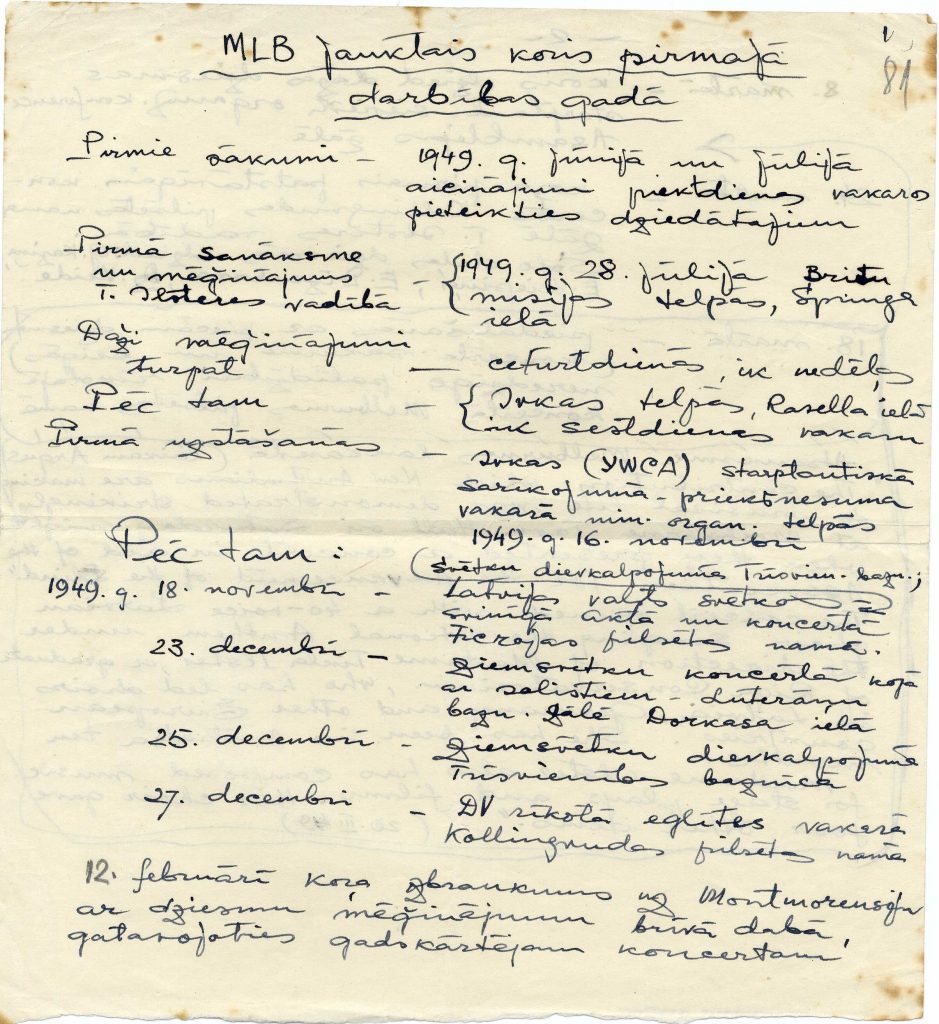 81
MLB jauktais koris pirmajā
darbības gadā
Pirmie sākumi – 1949. g. jūnijā un jūlijā
aicinājumi piektdienas vakaros
pieteikties dziedātājiem
Pirmā sanāksme
un mēģinājums
T. Ilsteres vadībā – { 1949. g. 28. jūlijā Britu
misijas telpās, Springa
ielā
Daži mēģinājumi
turpat – ceturtdienās, ik nedēļas
Pēc tam { Ivkas telpās, Rasella ielā
ik sestdienas vakaru
Pirmā uzstāšanās – Ivkas (YWCA) starptautiskā
sarīkojumā – priekšnesumu
vakarā min. organ. telpās
1949. g. 16. novembrī
Pēc tam:
(svētku dievkalpojumā Trīsvien. bazn.;
1949. g. 18. novembrī – Latvijas valsts svētkos
svinīgā aktā un koncertā
Ficrojas pilsētas namā.
23. decembrī – ziemsvētku koncertā kopā
ar solistiem Luterāņu
bazn. zālē Dorkasa ielā
25. decembrī – ziemsvētku dievkalpojumā
Trīsvienības baznīcā
27. decembrī – DV rīkotā eglītes vakarā
Kollingvudas pilsētas namā
12. februārī kora izbraukums uz Montmorensiju
ar dziesmu mēģinājumu brīvā dabā,
gatavojoties gadskārtējam koncertam